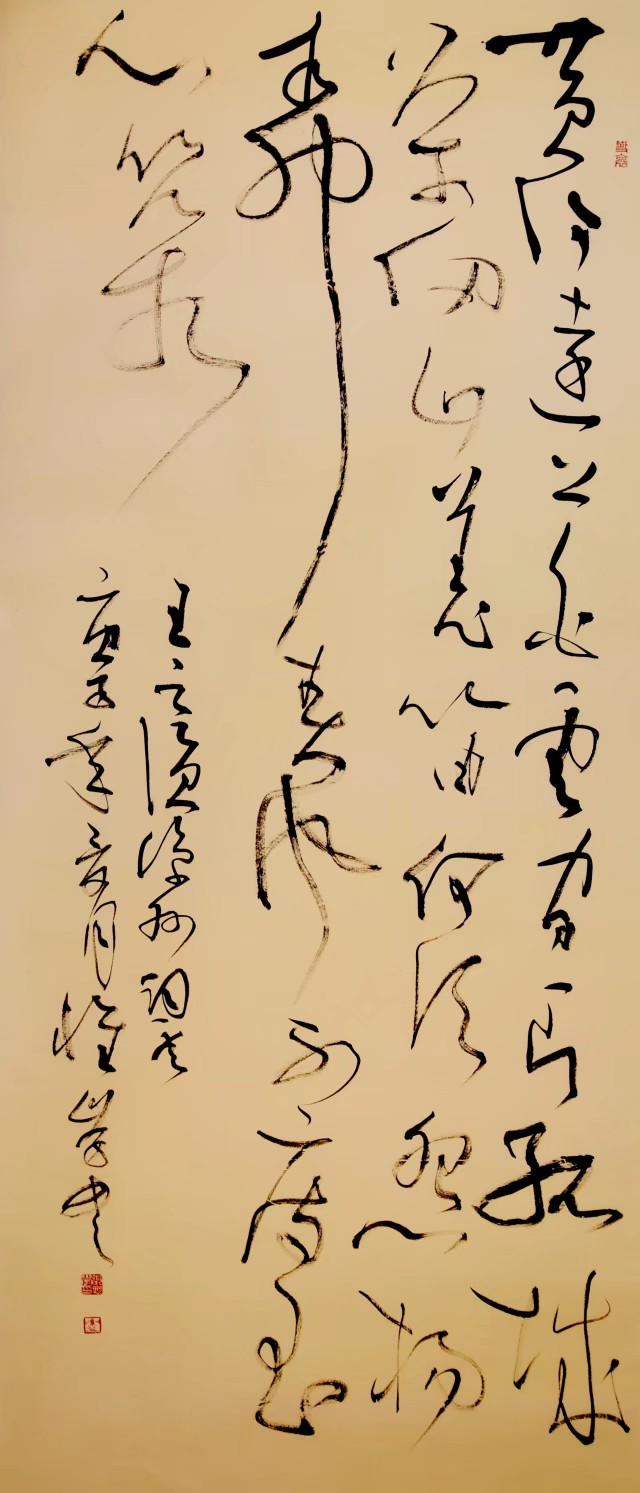 黄河遠上白雲間一片孤城
萬仞山羌笛何須怨楊
柳春風不度玉
門關
王之渙涼州詞
庚子年夏月書